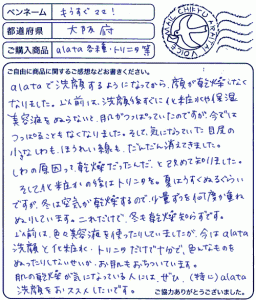 ペンネーム もうすぐママ!
都道府県 大阪府
ご購入商品 alata各種・トリニタ等
ご自由に商品に関するご感想などお書きください。
alataで洗顔するようになってから、顔が乾燥しなく
なりました。以前は、洗顔後すぐに化粧水や保湿
美容液をぬらないと、肌がつっぱっていたのですが、今では
つっぱることもなくなりました。そして、気になっていた目尻の
小さなしわも、ほうれい線も、だんだん消えてきました。
しわの原因って、乾燥だったんだ、と改めて知りました。
そして化粧水の後はトリニタを。夏はうすくぬるぐらい
ですが、冬は空気が乾燥するので、少量ずつを何度か重ね
ぬりしています。これだけで、冬も乾燥知らずです。
以前は、色々美容液を使ったりしていましたが、今はalata
洗顔と化粧水・トリニタだけで十分で、色んなものを
ぬったりしてないせいか、お肌もおちついています。
肌の乾燥が気になっている人には、ぜひ、(特に)alata
洗顔をおススメしたいです。
ご協力ありがとうございました。